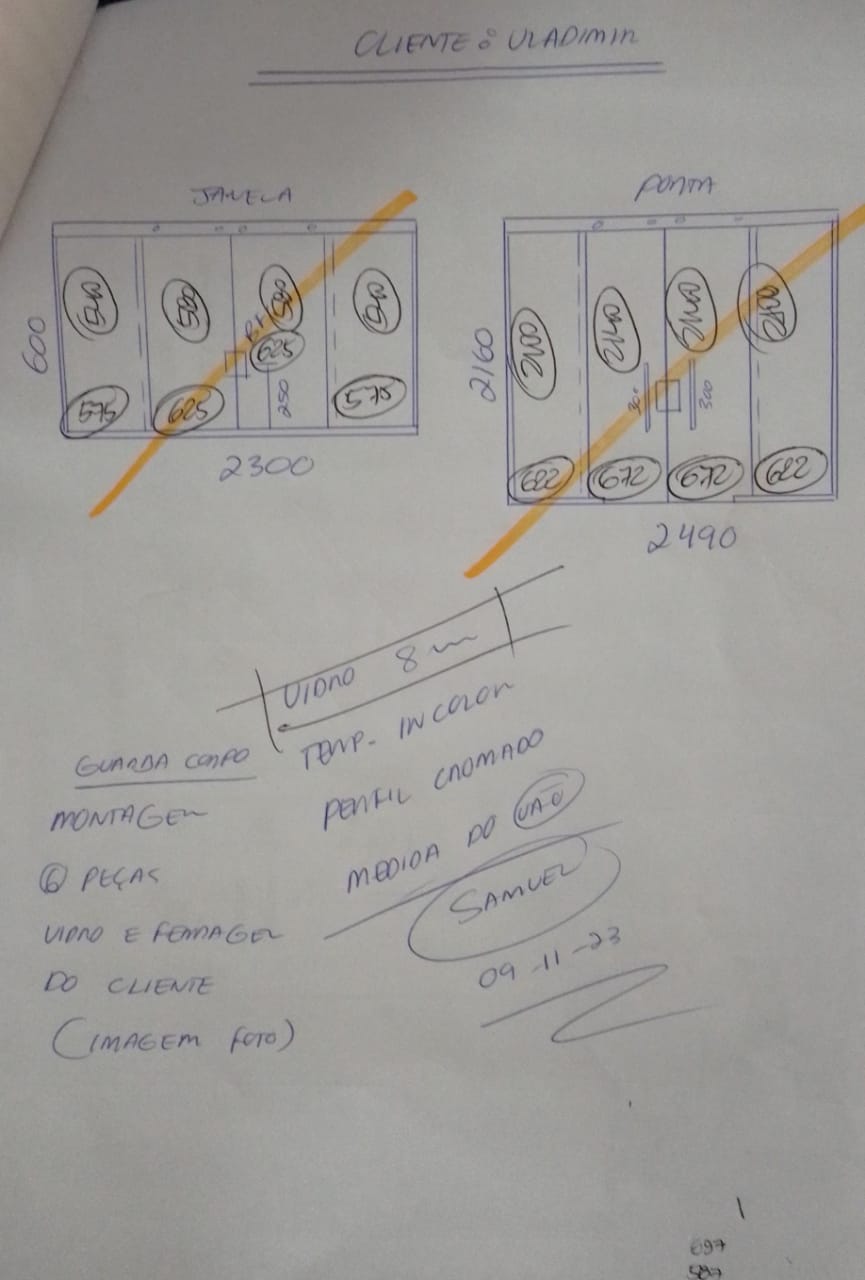 CLIENTE: VLADIMIR
JANELA
600
540
580
580
540
BX
575
625
625
575
250
2300
PORTA
2160
2100
2140
2140
2100
300
300
622
672
672
622
2490
VIDRO 8m
TEMP. INCOLOR
PERFIL CROMADO
MEDIDA DO VÃO
SAMUEL
09-11-23
GUARDA CORPO
MONTAGEM
6 PEÇAS
VIDRO E FERRAGEM
DO CLIENTE
(IMAGEM FOTO)
697
587